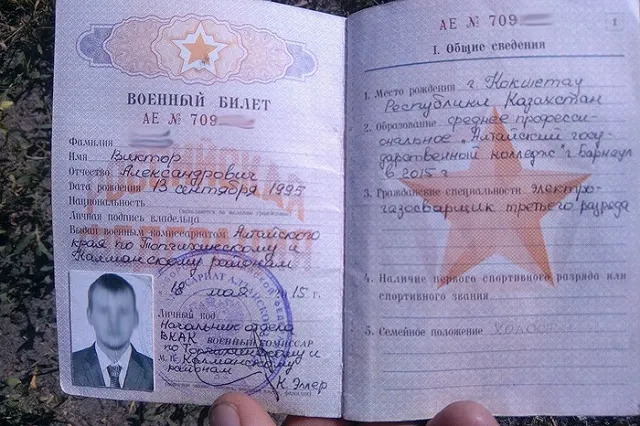 ВОЕННЫЙ БИЛЕТ
АЕ № 709
Фамилия
Имя Виктор
Отчество Александрович
Дата рождения 13 сентября 1995
Национальность
Личная подпись владельца
Выдан военным комиссариатом Алтайского
края по Топчихинскому и
Калманскому районам
18 мая 15 г.
Личный код
Начальник отдела
ВКАК ВОЕННЫЙ КОМИССАР
по Топчихинскому и
М.П. Калманскому
районам
К. Эллер
АЕ № 709
1
I. Общие сведения
1. Место рождения г. Кокшетау
Республики Казахстан
2. Образование среднее професси-
ональное "Алтайский госу-
дарственный колледж" г. Барнаул
в 2015 г
3. Гражданские специальности электро-
газосварщик третьего разряда
4. Наличие первого спортивного разряда или
спортивного звания
5. Семейное положение холост